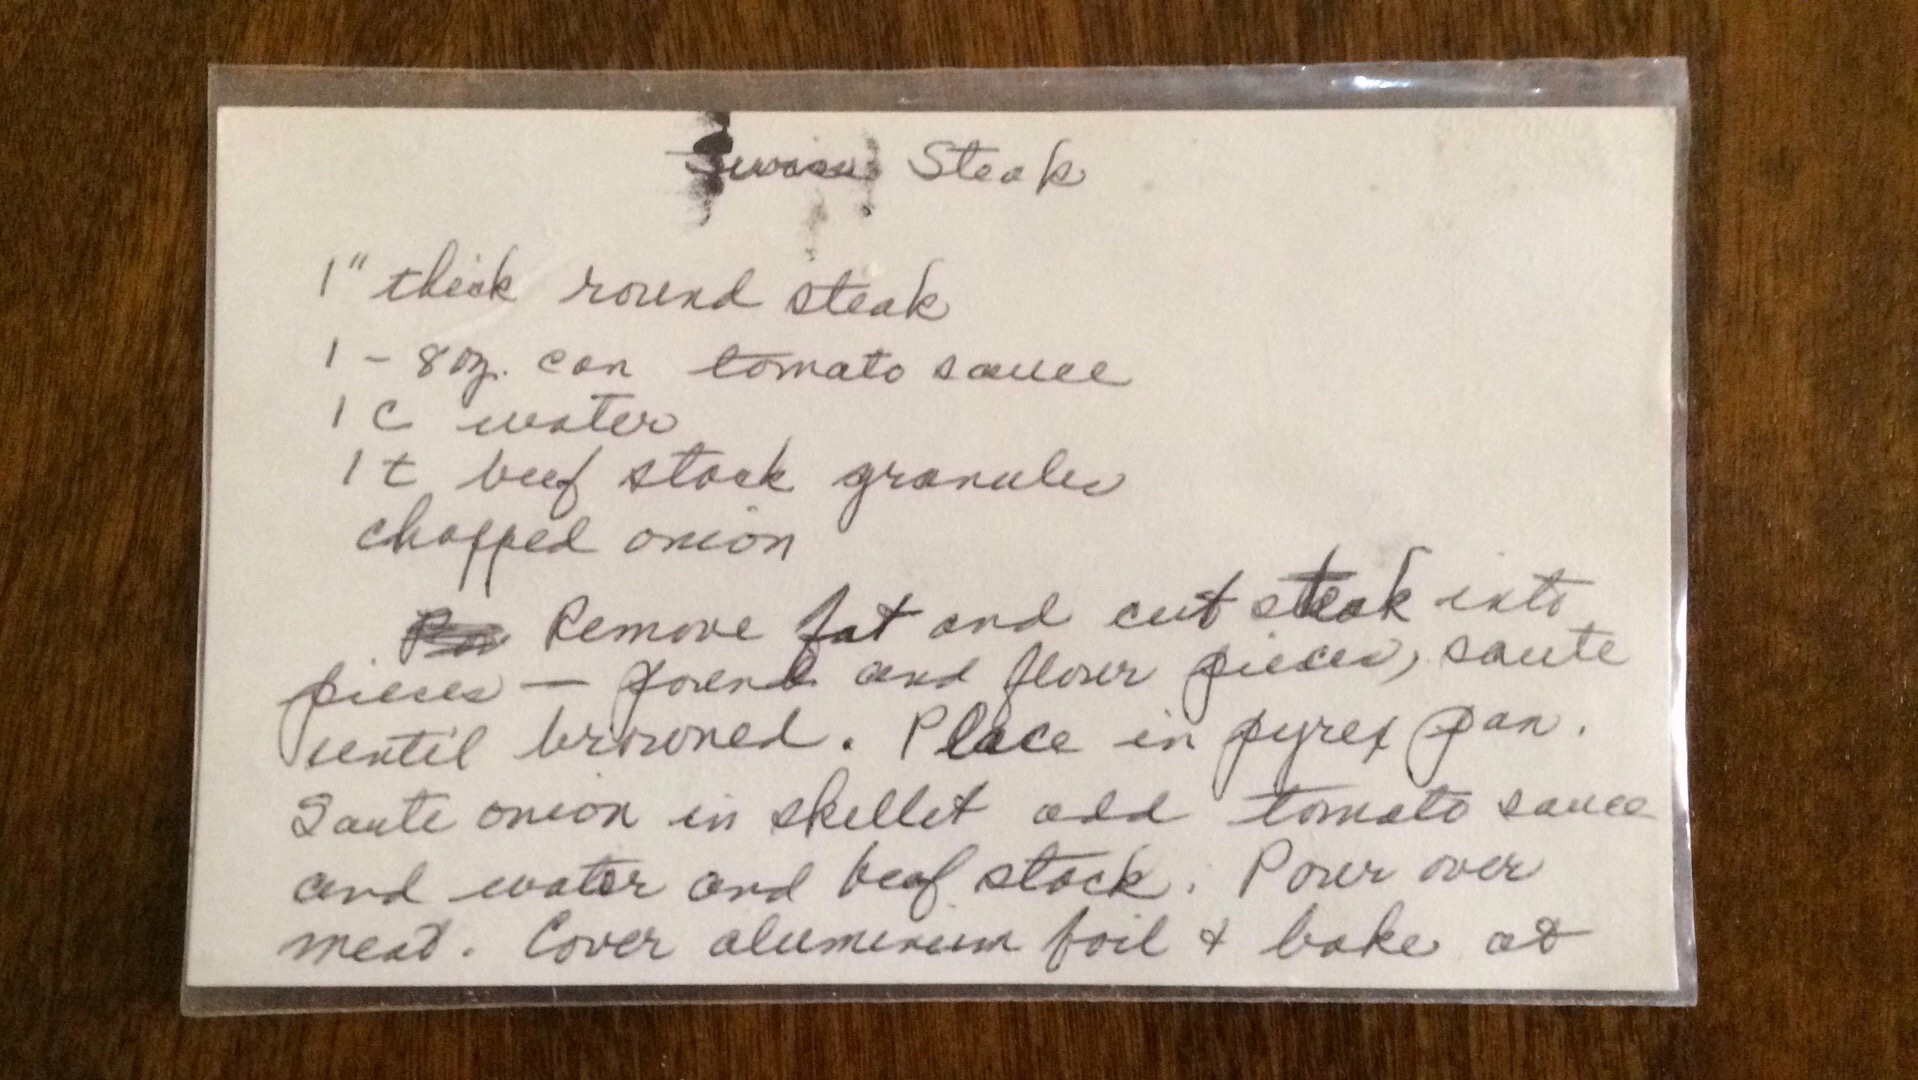 Steak
1" thick round steak
1 - 8 oz. can tomato sauce
1 c water
1 t beef stock granules
chopped onion
Remove fat and cut steak into
pieces — pound and flour pieces, saute
until browned. Place in pyrex pan.
Saute onion in skillet add tomato sauce
and water and beef stock. Pour over
meat. Cover aluminum foil & bake at